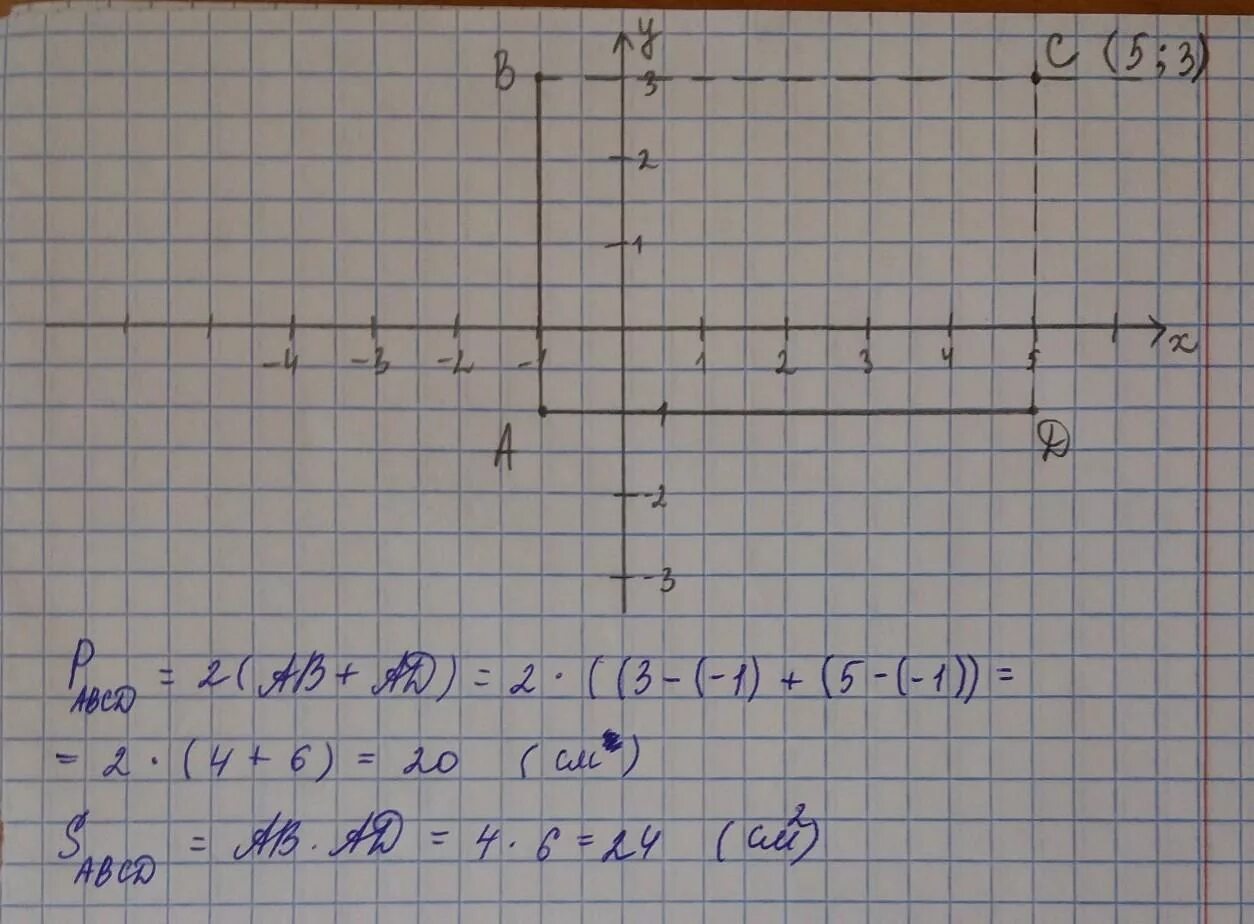 y
B 3 C (5;3)
2
1
-4 -3 -2 -1 1 2 3 4 5 x
1
A D
-2
-3
P ABCD = 2(AB + AD) = 2 · ((3-(-1) + (5-(-1)) =
= 2 · (4 + 6) = 20 (см)
S ABCD = AB · AD = 4 · 6 = 24 (см²)